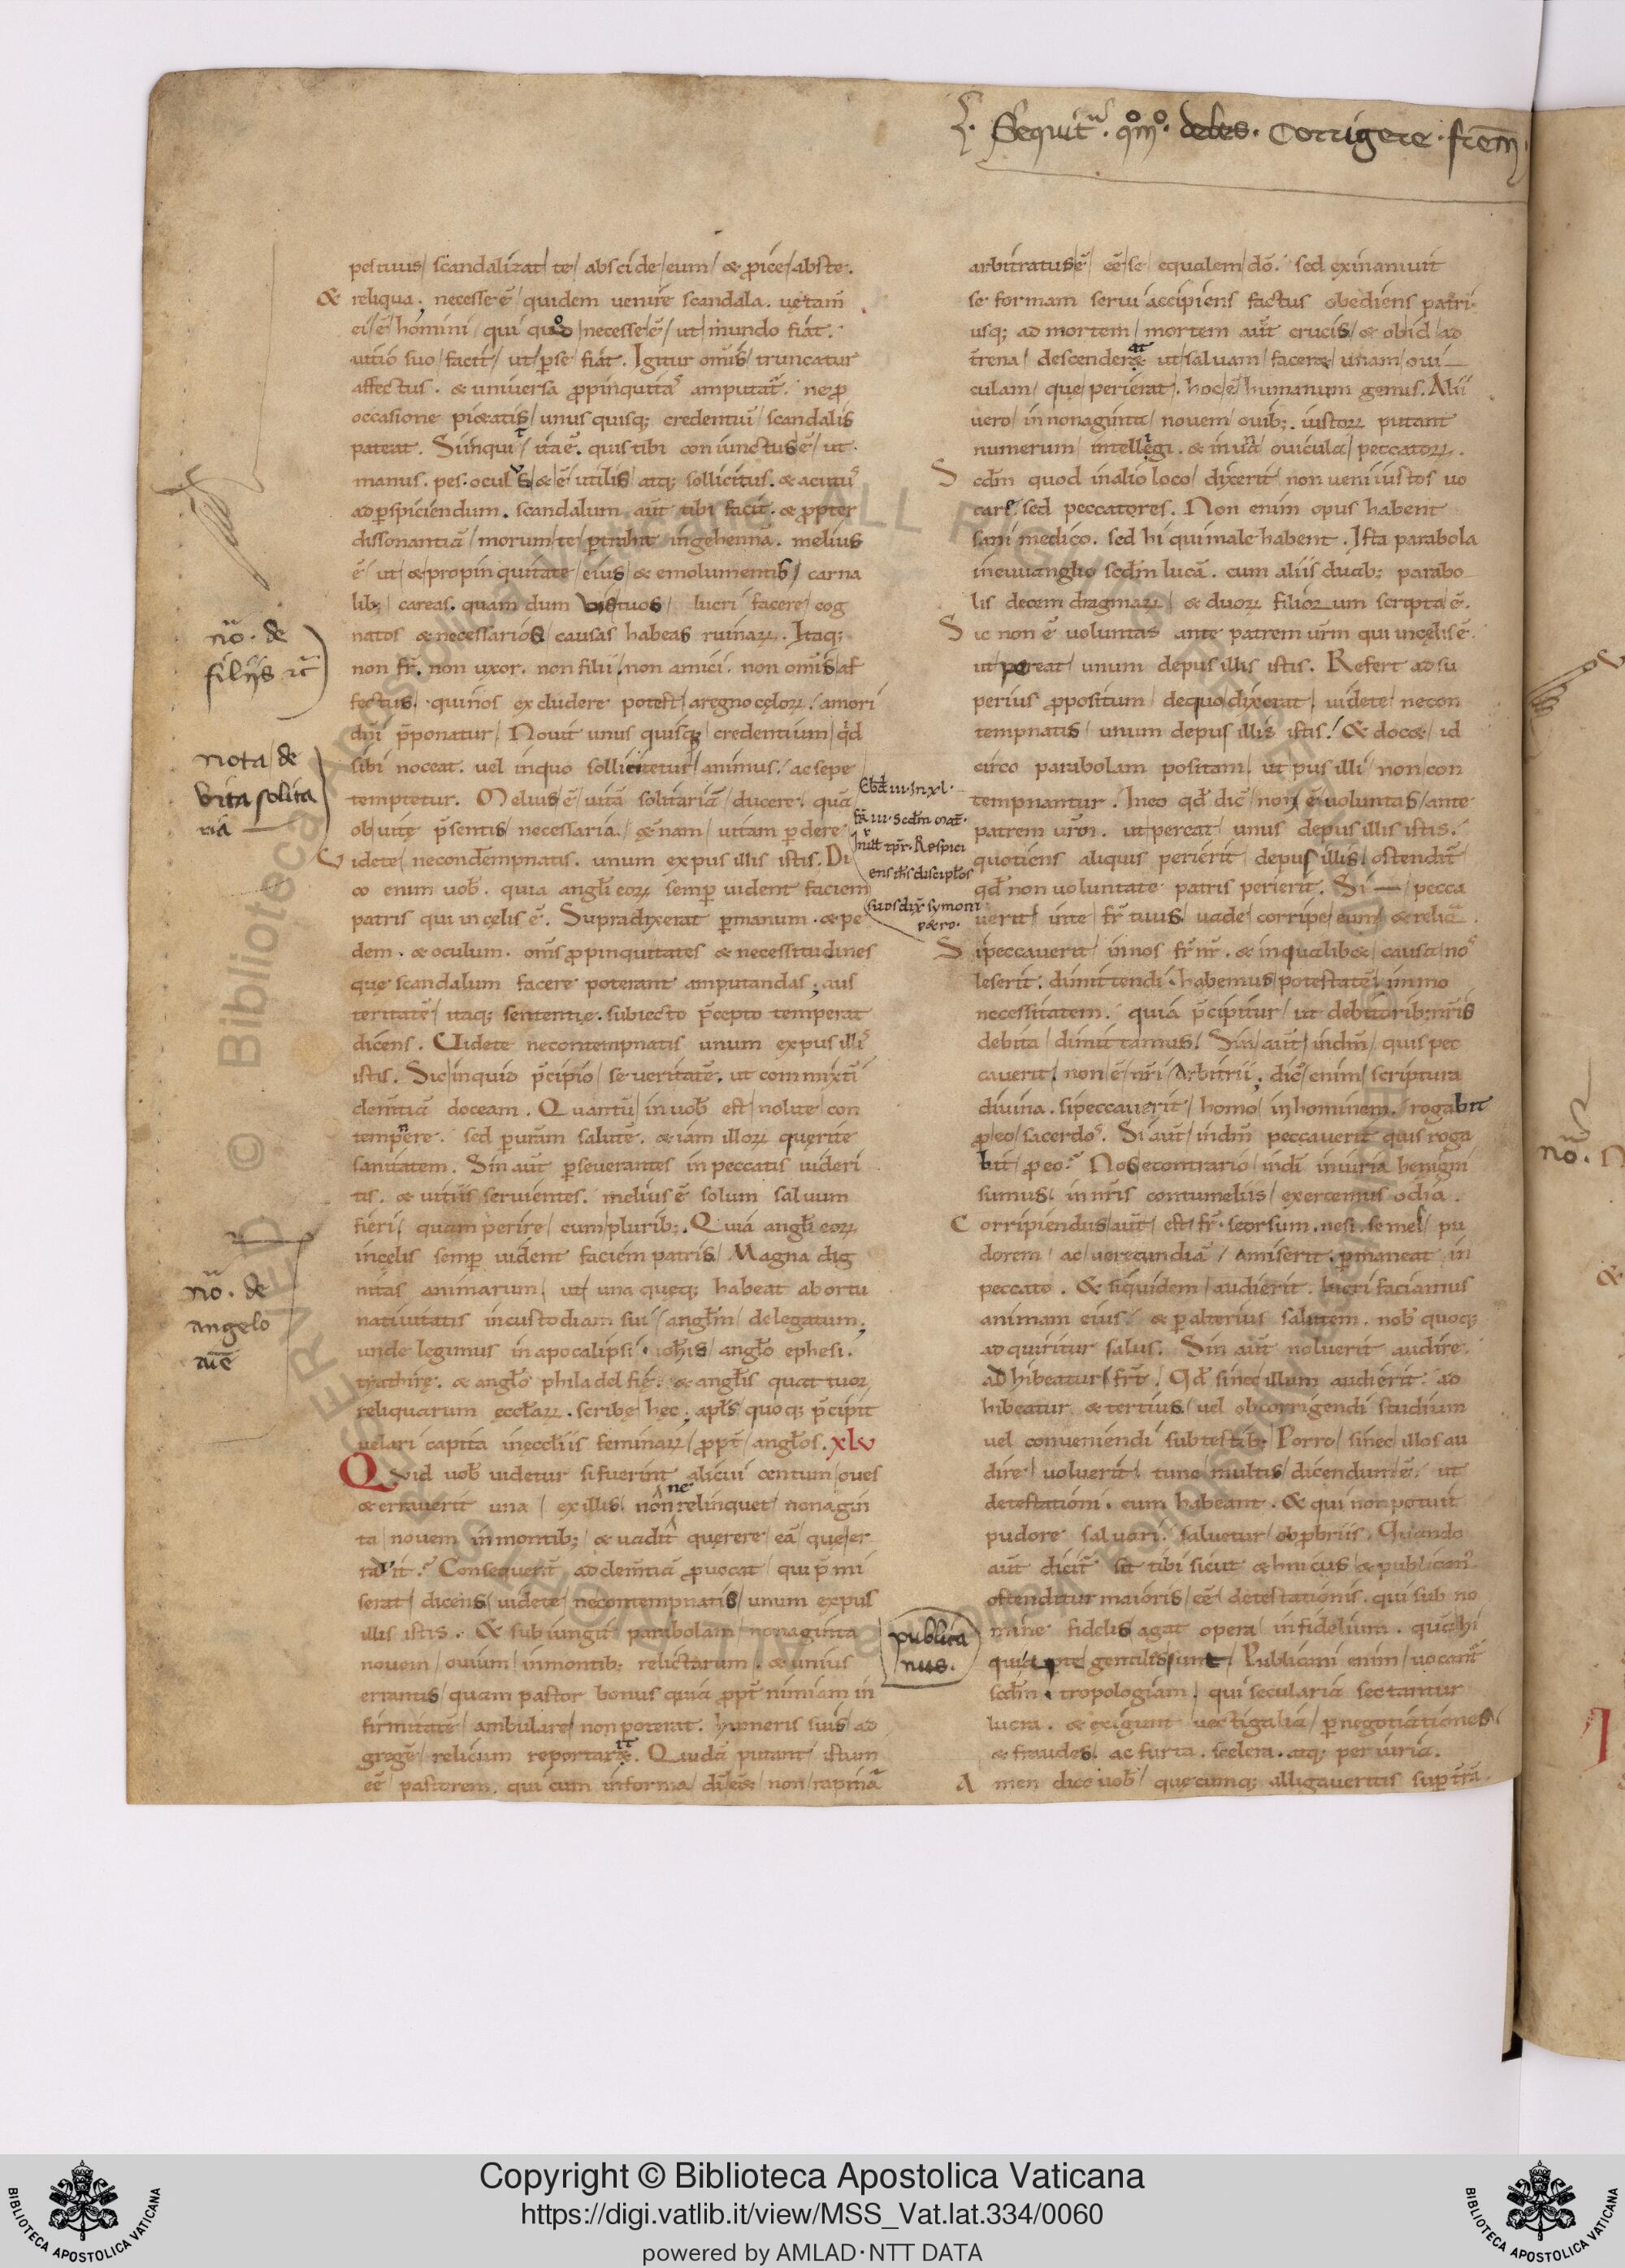 Sequit᷑. qͦmͦ. debes. Corrigere. fr̄em
pestuus scandalizat te abscide eum & p̱ice abste.
& reliqua; necesse ē quidem uenire scandala. uę tam̄
ci ē homini qui quod necesse ē ut mundo fiat.
uitio suo facit ut p̱ se fiat. Igitur om̄is truncatur
affectus. & uniuersa p̱pinquitas amputat᷑. ne p̱
occasione pi&atis unusquisq; credentiū scandalis
pateat. Siinquit ita ē. quis tibi coniunctus ē ut
manus. pes. oculus & ē utilis atq; sollicitus. & acutus
ad p̱spiciendum. scandalum aūt tibi facit. & p̱pter
dissonantiā morum te p̱trahit ingehennā. melius
ē ut & propinquitate eius & emolumentis carna
lib; careas. quam dum uis tuos lucri facere cog
natos & necessarios causas habeas ruinaꝝ. Itaq;
non fr̄. non uxor. non filii. non amici. non om̄is af
fectus. qui nos excludere potest a regno cęloꝝ. amori
dn̄i p̄ponatur. Nouit unus quisq; credentium q̄d
sibi noceat. uel inquo sollicitetur animus. ac sepe
temptetur. Melius ē uitā solitariā ducere. quā
ob uitę p̄sentis necessaria. ęt̄nam uitam p̱dere.
Uidete ne contempnatis. unum ex pusillis istis. Di
co enim uob̄. quia angl̄i eoꝝ semp̱ uident faciem
patris qui in cęlis ē. Supra dixerat p̱ manum. & pe
dem. & oculum. om̄s p̱pinquitates & necessitudines
que scandalum facere poterant amputandas; aus
teritatē itaq; sententię. subiecto p̄cepto temperat
dicens. Uidete ne contempnatis unum ex pusillis
istis. Sic inquid p̄cipio seueritatē. ut commixti
clem̄tiā doceam. Quantū in uob̄ est nolite con
tempnere. sed p̱ ur̄am salutē. & iam illoꝝ quęrite
sanitatem. Sin aūt p̱seuerantes in peccatis uideri
tis. & uitiis seruientes. melius ē solum saluum
fieri quam perire cum plurib;. Quia angl̄i eoꝝ
incęlis semp̱ uident faciem patris. Magna dig
nitas animarum ut una queq; habeat ab ortu
natiuitatis incustodiam sui angl̄m delegatum;
unde legimus in apocalipsi. ioh̄is angl̄o ephesi.
tyathirę. & angl̄o philadelfię. & angl̄is quattuor
reliquarum eccl̄aꝝ. scribe hec; apl̄s quoq; p̄cipit
uelari capita in eccl̄iis feminaꝝ p̱pt̄ angl̄os. xlv
Quid uob̄ uidetur si fuerint alicui centum oues
& errauerit una ex illis. nonne relinquet nonagin
ta nouem inmontib; & uadit querere eā que er
rauit. Consequent᷑ ad clem̄tiā p̱uocat qui p̄mi
serat dicens uidete ne contempnatis unum ex pusil
illis istis. & subiungit parabolam nonaginta
nouem ouium inmontib; relictarum. & unius
errantis quam pastor bonus quia p̱pt̄ nimiam in
firmitatē ambulare non poterat. humeris suis ad
gregē relicum reportarit. Quidā putant istum
eē pastorem. qui cum informa dī eēt non rapinā
nō. de
filiis
nota de
vita solita
ria
nō. de
angelo
Ebd̄ iii. in xl.
fr̄ iii. scd̄m mat̄.
In ill̄ tp̄r. Respici
ens ih̄s discipl̄os
suos dix̄ symoni
p&ro.
publica
nus.
arbitratus ē eē se equalem dō. sed exinaniuit
se formam serui accipiens factus obediens patri
usq; ad mortem mortem aūt crucis & ob id ad
t̄rena descenderat ut saluam facer& unam oui
culam que perierat. hoc ē humanum genus. Alii
uero in nonaginta nouem ouib;. iustoꝝ putant
numerum intellegi. & in una ouicula peccatoꝝ.
Scd̄m quod in alio loco dixerit non ueni iustos uo
care sed peccatores. Non enim opus habent
sani medico. sed hi qui male habent. Ista parabola
ineuuanglio scd̄m lucā. cum aliis duab; parabo
lis decem dragmaꝝ & duoꝝ filiorum scripta ē.
Sic non ē uoluntas ante patrem ur̄m qui incęlis ē.
ut pereat unum de pusillis istis. Refert ad su
perius p̱positum de quo dixerat uidete ne con
tempnatis unum de pusillis istis. & doc& id
circo parabolam positam. ut pusilli non con
tempnantur. In eo qd̄ dic̄ non ē uoluntas ante
patrem ur̄m. ut pereat unus de pusillis istis.
quotiens aliquis perierit de pusillis. ostendit᷑
qd̄ non uoluntate patris perierit. Si pecca
uerit inte fr̄ tuus uade corripe eum & reliq̄a.
Si peccauerit innos fr̄ nr̄. & in qualib& causa nos
leserit. dimittendi habemus potestatē immo
necessitatem. quia p̄cipitur ut debitorib; nr̄is
debita dimittamus. Sin aūt indm̄ quis pec
cauerit. non ē nr̄i arbitrii; dic̄ enim scriptura
diuina. si peccauerit homo inhominem. rogabit
p̱ eo sacerdos. Si aūt indm̄ peccauerit quis roga
bit p̱ eo. Nos econtrario indī iniuria benigni
sumus. in nr̄is contumeliis exercemus odia.
Corripiendus aūt est fr̄ seorsum. ne si semel pu
dorem ac uerecundiā amiserit. p̱maneat in
peccato. & siquidem audierit. lucri faciamus
animam eius. & p̱ alterius salutem. nob̄ quoq;
adquiritur salus. Sin aūt noluerit audire.
adhibeatur fr̄. Qd̄ si nec illum audierit. ad
hibeatur & tertius uel ob corrigendi studium
uel conueniendi sub testib;. Porro si nec illos au
dire uoluerit. tunc multis dicendum ē. ut
detestationi. eum habeant. & qui non potuit
pudore saluari. saluetur ob p̱briis. Quando
aūt dicit᷑ sit tibi sicut &hnicus & publicanus
ostenditur maioris eē detestationis. qui sub no
mine fidelis agat opera infidelium. quā hi
qui ap̱te gentiles sunt. Publicani enim uocant᷑
scd̄m tropologiam. qui secularia sectantur
lucra. & exigunt uectigalia p̱ negotiationes
& fraudes. ac furta. scelera. atq; periuria.
Amen dico uob̄ quęcumq; alligaueritis sup̱ t̄rā.
nō.
Copyright © Biblioteca Apostolica Vaticana
https://digi.vatlib.it/view/MSS_Vat.lat.334/0060
powered by AMLAD·NTT DATA
BIBLIOTECA APOSTOLICA VATICANA
BIBLIOTECA APOSTOLICA VATICANA